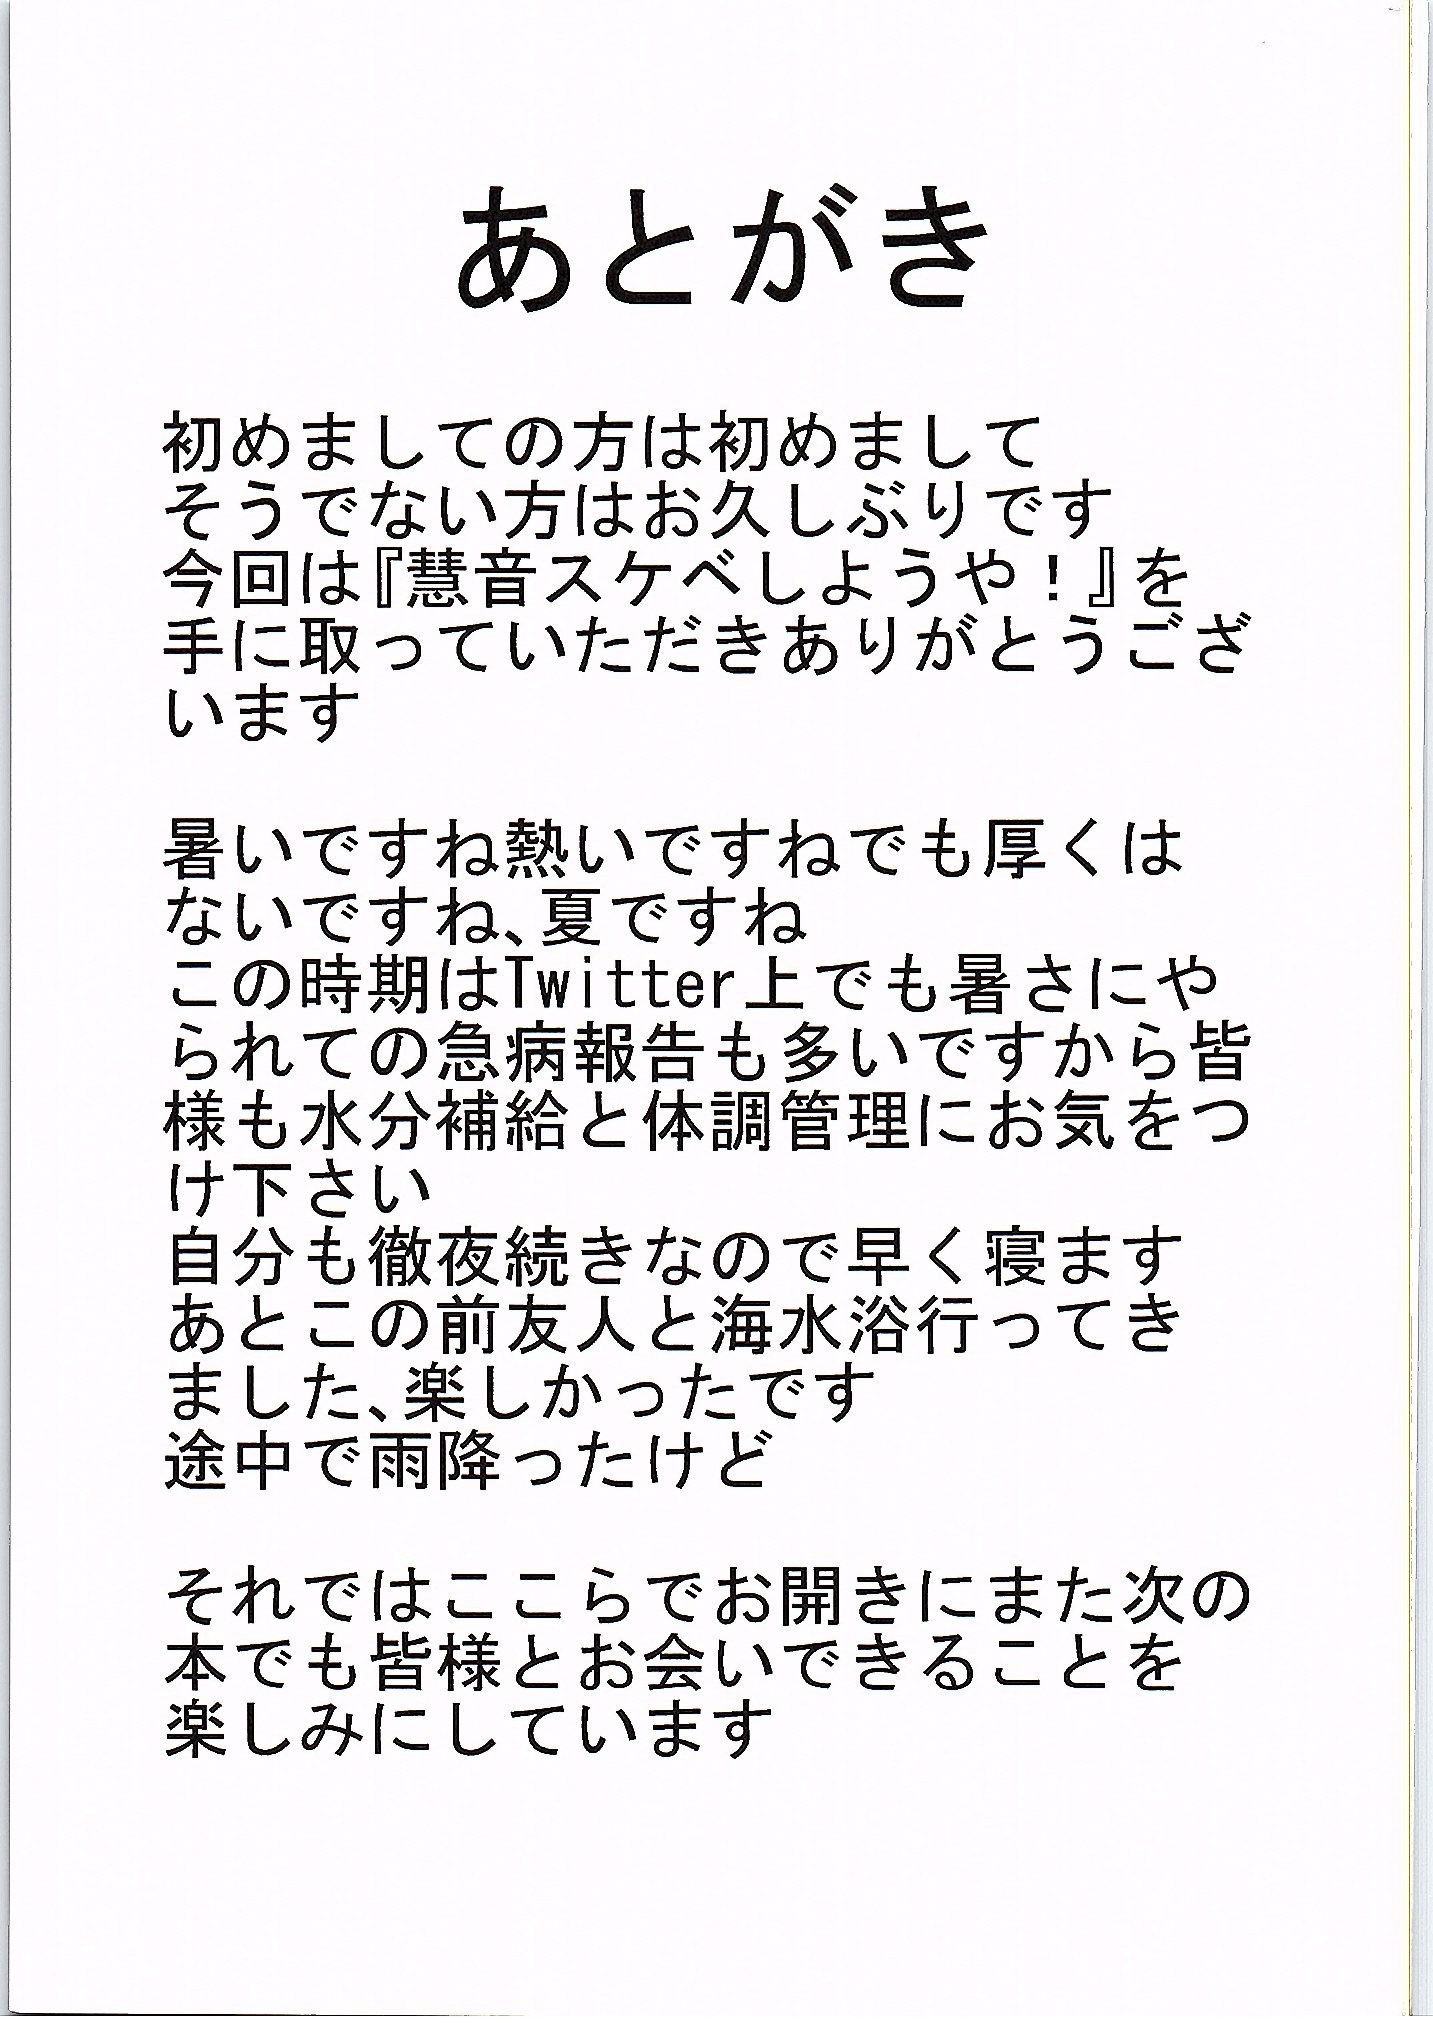 あとがき
初めましての方は初めまして
そうでない方はお久しぶりです
今回は『慧音スケベしようや！』を
手に取っていただきありがとうござ
います
暑いですね熱いですねでも厚くは
ないですね、夏ですね
この時期はTwitter上でも暑さにや
られての急病報告も多いですから皆
様も水分補給と体調管理にお気をつ
け下さい
自分も徹夜続きなので早く寝ます
あとこの前友人と海水浴行ってき
ました、楽しかったです
途中で雨降ったけど
それではここらでお開きにまた次の
本でも皆様とお会いできることを
楽しみにしています